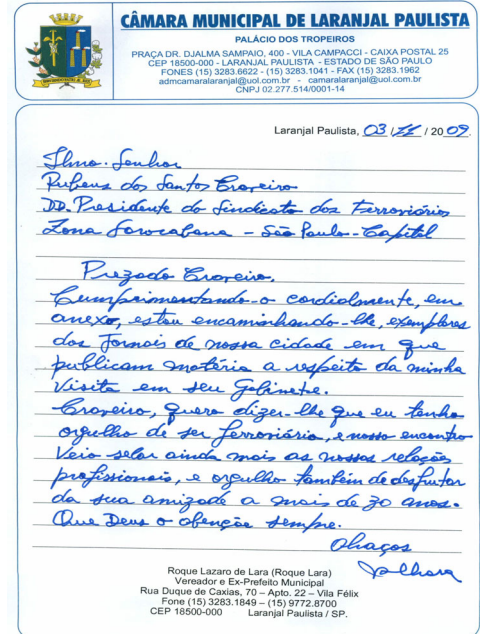 CÂMARA MUNICIPAL DE LARANJAL PAULISTA
PALÁCIO DOS TROPEIROS
PRAÇA DR. DJALMA SAMPAIO, 400 - VILA CAMPACCI - CAIXA POSTAL 25
CEP 18500-000 - LARANJAL PAULISTA - ESTADO DE SÃO PAULO
FONES (15) 3283.6622 - (15) 3283.1041 - FAX (15) 3283.1962
admcamaralaranjal@uol.com.br - camaralaranjal@uol.com.br
CNPJ 02.277.514/0001-14
Laranjal Paulista, 03/11/2009.
Ilmo. Senhor
Rubens dos Santos Craveiro
DD. Presidente do Sindicato dos Ferroviários
Zona Sorocabana - São Paulo - Capital
Prezado Craveiro,
Cumprimentando-o cordialmente, em
anexo, estou encaminhando-lhe, exemplares
dos Jornais de nossa cidade em que
publicam matéria a respeito da minha
Visita em seu Gabinete.
Craveiro, quero dizer-lhe que eu tenho
orgulho de ser ferroviário, e nosso encontro
Veio selar ainda mais as nossas relações
profissionais, e orgulho também de desfrutar
da sua amizade a mais de 30 anos.
Que Deus o abençõe sempre.
Abraços
Roque Lazaro de Lara (Roque Lara)
Vereador e Ex-Prefeito Municipal
Rua Duque de Caxias, 70 – Apto. 22 – Vila Félix
Fone (15) 3283.1849 – (15) 9772.8700
CEP 18500-000 Laranjal Paulista / SP.